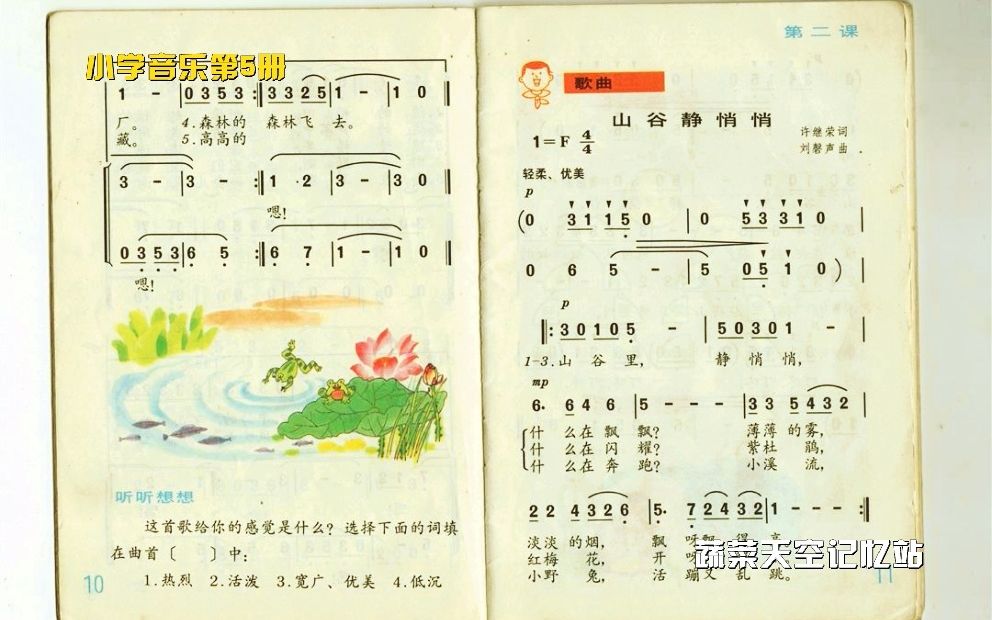 小学音乐第5册
1 - | 0 3 5 3 :| 3 3 2 5 | 1 - | 1 0
厂。 4.森林的 森林飞 去。
藏。 5.高高的
3 - | 3 - :| 1·2 | 3 - | 3 0
嗯!
0 3 5 3 | 6 5 :| 6 7 | 1 - | 1 0
嗯!
听听想想
这首歌给你的感觉是什么? 选择下面的词填
在曲首〔 〕中:
1.热烈 2.活泼 3.宽广、优美 4.低沉
10
第二课
歌曲
山谷静悄悄
1=F 4/4
许继荣词
刘磬声曲
轻柔、优美
p
(0 3 1 1 5 0 | 0 5 3 3 1 0 |
0 6 5 - | 5 0 5 1 0) |
p
|: 3 0 1 0 5 - - | 5 0 3 0 1 - - |
1-3.山 谷 里, 静 悄 悄,
mp
6· 6 4 6 | 5 - - - | 3 3 5 4 3 2 |
什 么在 飘飘? 薄薄 的雾,
什 么在 闪耀? 紫杜 鹃,
什 么在 奔跑? 小溪 流,
2 2 4 3 2 6 | 5· 7 2 4 3 2 | 1 - - - :|
淡淡 的烟, 飘 呀飘 得 高。
红梅 花, 开
小野 兔, 活 蹦又 乱 跳。
蔬菜天空记忆站
11